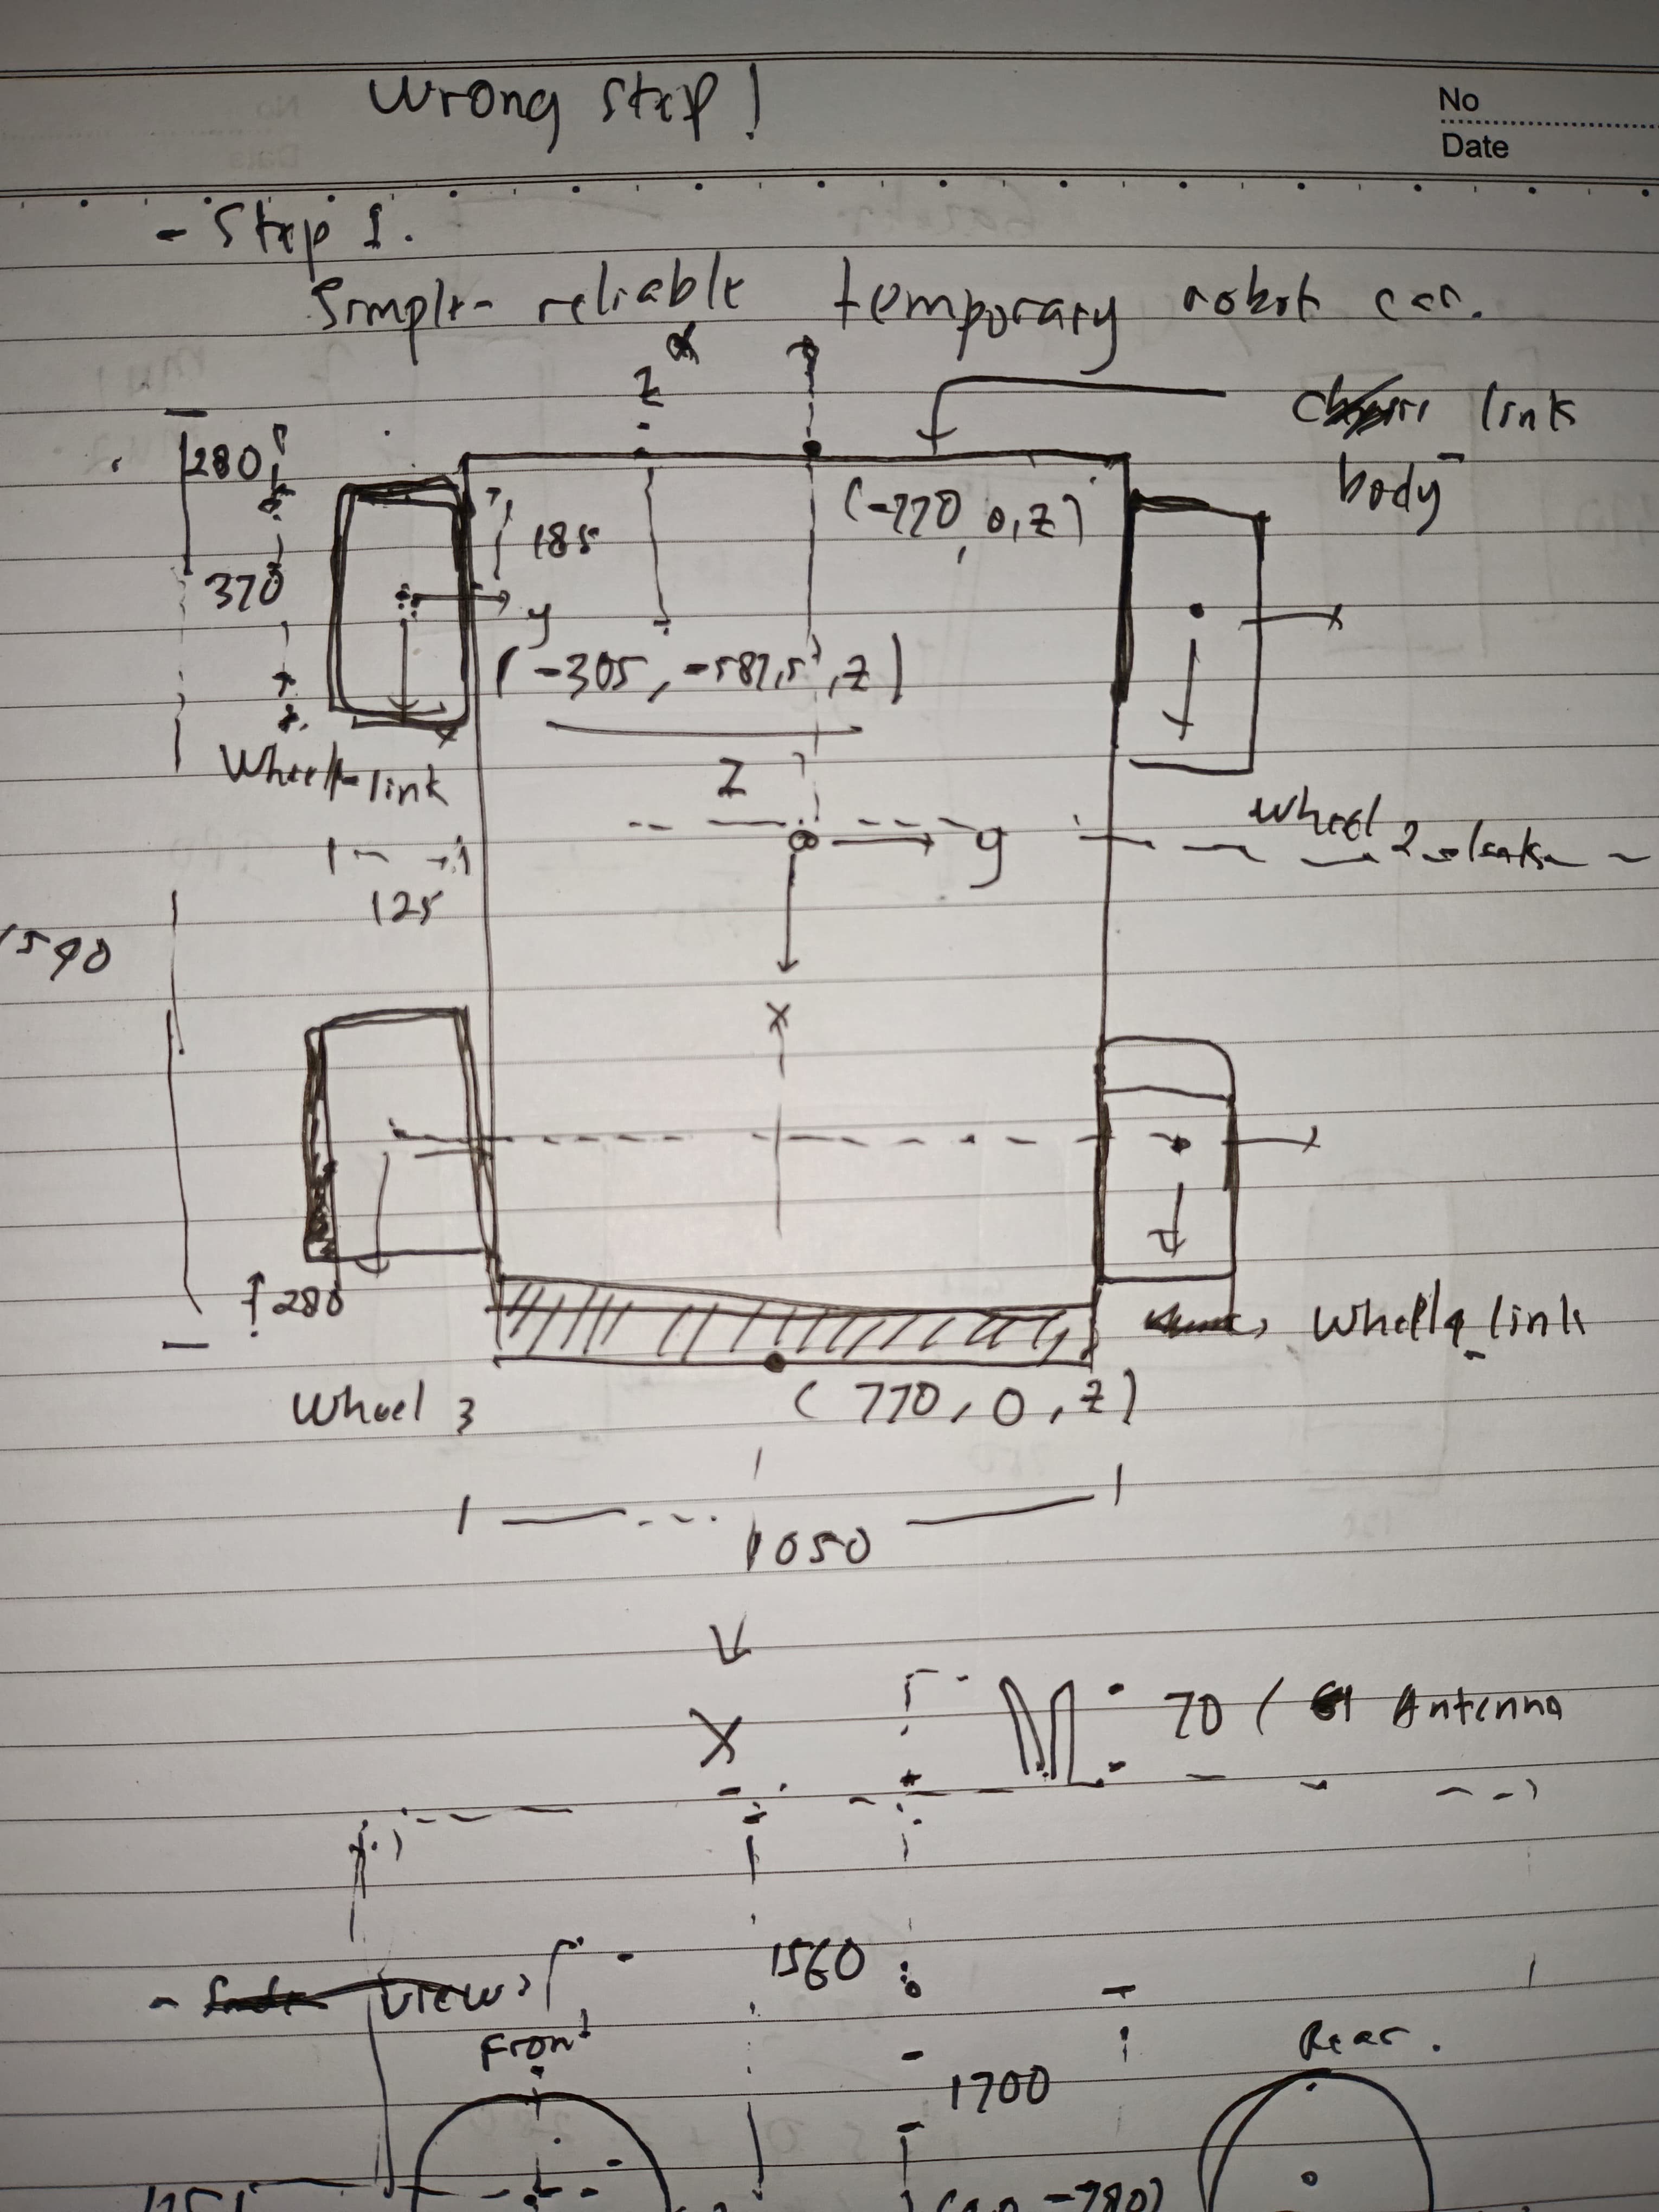 Wrong step!
No
Date
- Step 1.
Simple reliable temporary robot car.
z
link
body
280
(-770, 0, z)
185
370
y
(-305, -587,5, z)
Wheel link
z
wheel 2
y
125
x
280
Wheel 4 link
Wheel 3
(770, 0, z)
1050
X
70 / Antenna
1560
- View:
Front
Rear.
1700